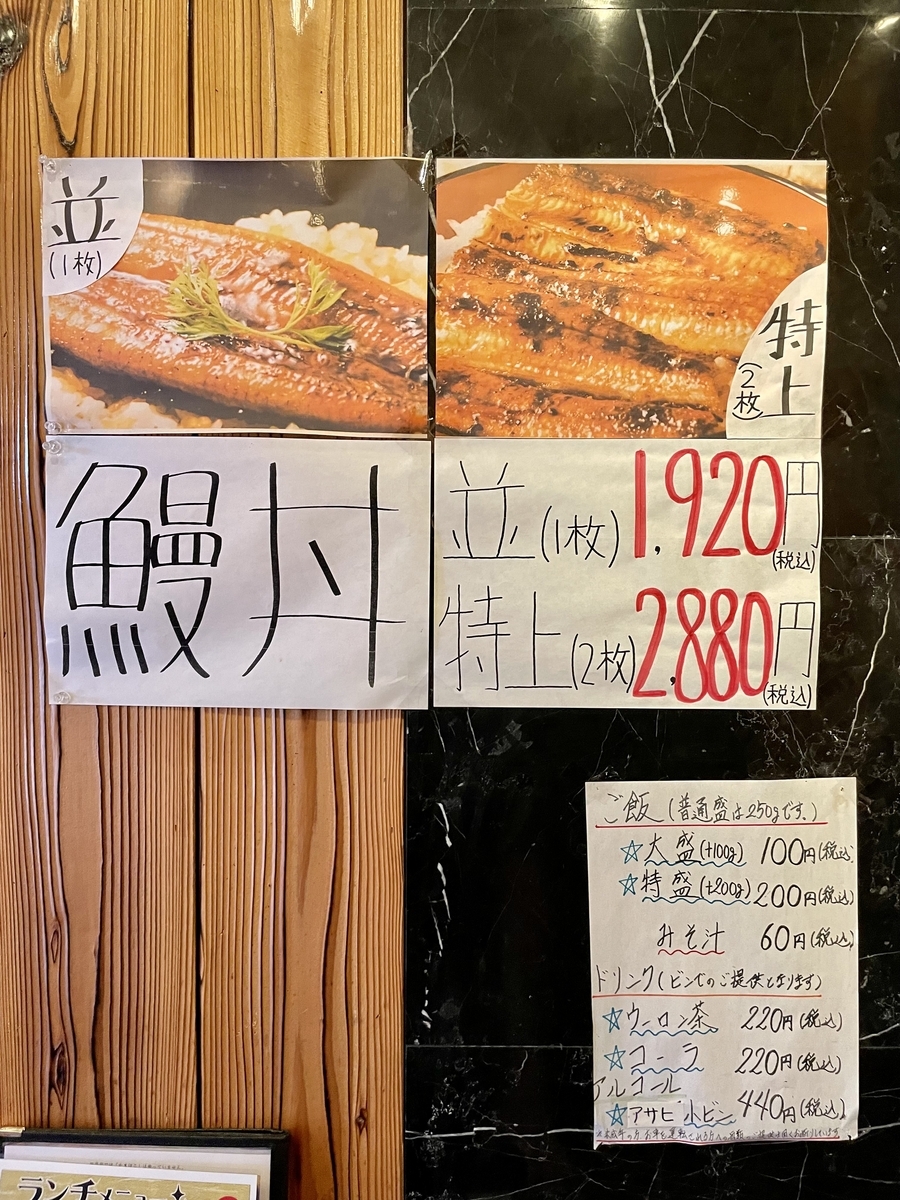 並
(1枚)
特上
(2枚)
鰻丼
並(1枚)1,920円
(税込)
特上(2枚)2,880円
(税込)
ご飯(普通盛は250gです。)
☆大盛(+100g) 100円(税込)
☆特盛(+200g) 200円(税込)
みそ汁 60円(税込)
ドリンク(ビンでのご提供となります)
☆ウーロン茶 220円(税込)
☆コーラ 220円(税込)
アルコール
☆アサヒ小ビン 440円(税込)
ランチメニュー